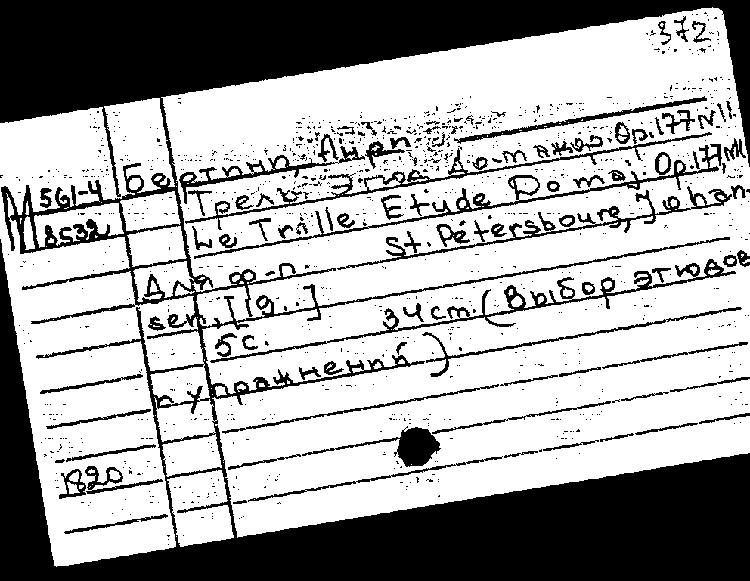 372
М 561-4 Бертини, Анри
8532 Трель. Этюд До-мажор. Op.177 N11.
Le Trille. Etude Do maj. Op.177, N11
Для ф-п. St. Pétersbourg, Johan-
sen, [19..]
5с. 34 cm. (Выбор этюдов
и упражнений).
1820.